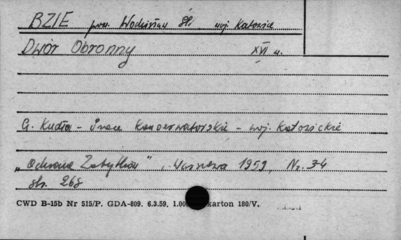 BZIE pow. Wodzisław Śl. woj. Katowice
Dwór Obronny XVI w.
G. Kudła - Prace Konserwatorskie - woj. Katowickie
"Ochrona Zabytków", Warszawa 1959, Nr. 3-4
str. 268
CWD B-15b Nr 515/P. GDA-809. 6.3.59, 1.00 karton 180/V.